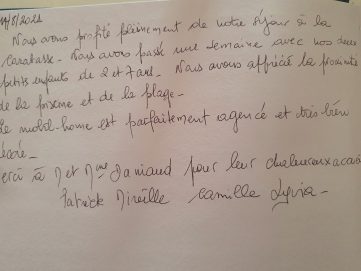 /8/2021
Nous avons profité pleinement de notre séjour à la
Carabasse. Nous avons passé une semaine avec nos deux
petits enfants de 2 et 7 ans. Nous avons apprécié la proximité
de la piscine et de la plage.
Le mobil-home est parfaitement agencé et très bien
Merci à M et Mme pour leur chaleureux
Patrick Mireille Camille Sylvia